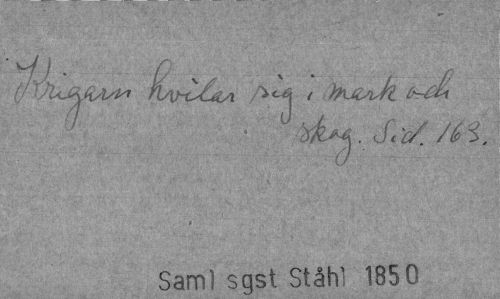 Krigarn hvilar sig i mark och
skog. Sid. 163.
Saml sgst Ståhl 1850